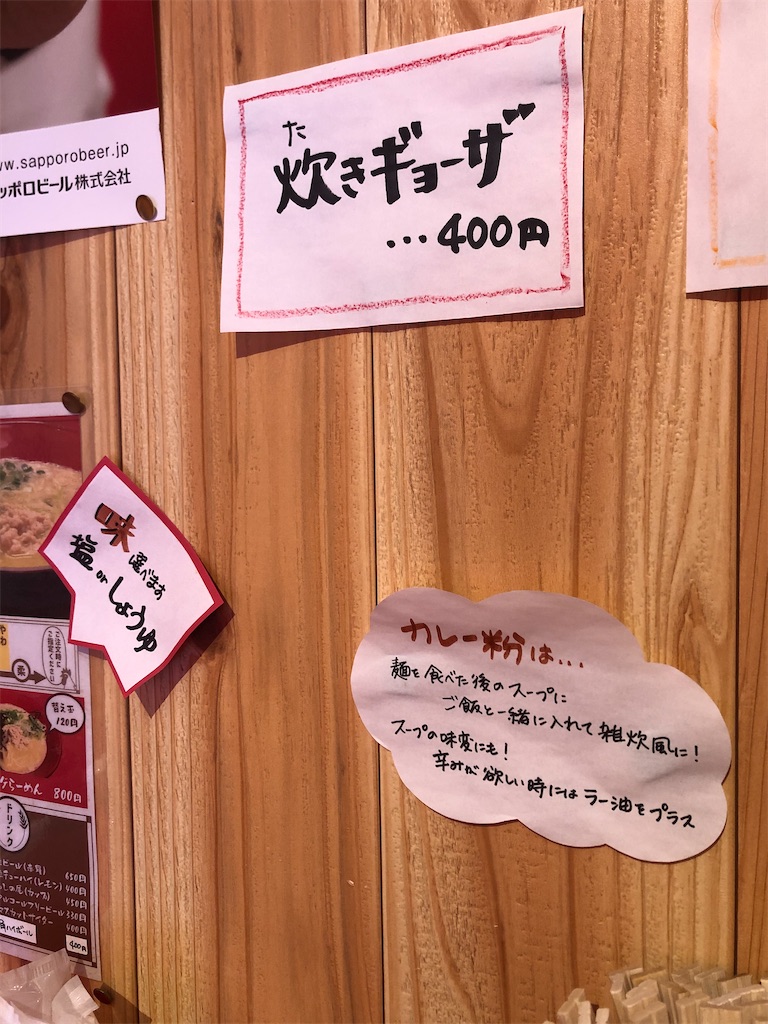 www.sapporobeer.jp
ッポロビール株式会社
た
炊きギョーザ
…400円
味
選べます
塩 or しょうゆ
カレー粉は…
麺を食べた後のスープに
ご飯と一緒に入れて雑炊風に!
スープの味変にも!
辛みが欲しい時にはラー油をプラス
やわ
柔
ご注文時に
ご指定ください
替え玉
120円
らーめん 800円
ドリンク
ビール(赤星) 650円
(レモン) 400円
(カップ) 450円
ルコールフリービール 330円
カットサイダー 400円
ハイボール 400円